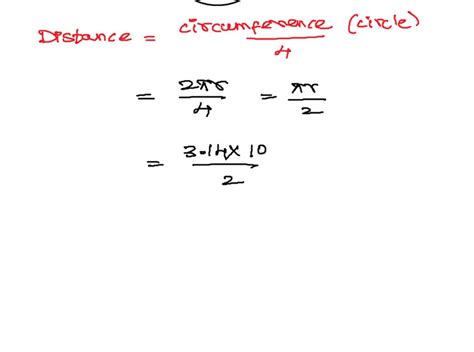 Distance = circumference (circle) / 4
= 2πr / 4 = πr / 2
= 3.14 × 10 / 2